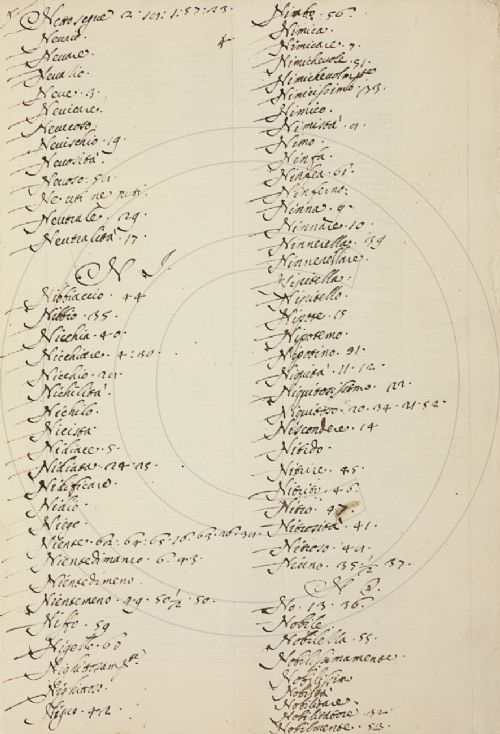 Nettosegue
Nevaio.
Nevare.
Nevatio.
Neve. 3.
Nevicare.
Nevicoso.
Nevischio. 19.
Nevosità.
Nevoso. 
Ne uti ne puti.
Neutrale. 29.
Neutralità. 17.
N I.
Nibbiaccio. 44
Nibbio. 35.
Nicchia. 40.
Nicchiare. 4:
Nicchio.
Nichilità.
Nichilo.
Nicistà
Nidiare. 5.
Nidiata. 24. 25.
Nidificare.
Nidio.
Niego
Niente.
Nientedimanco. 6. 43.
Nientedimeno.
Nientemeno. 49. 50 1/2. 50.
Nifo. 59
Nigello. 60
Nighittosam.te
Nighitoso.
Nimbo. 56.
Nimica.
Nimicare. 7.
Nimichevole. 51.
Nimichevolm.te
Nimicissimo. 33.
Nimico.
Nimistà.
Nimo.
Ninfa.
Ninfea. 61.
Ninferno.
Ninna. 9.
Ninnare. 10.
Ninnerella. 39
Ninnerellare.
Nipitella.
Nipitello.
Nipote. 15
Nipotino. 31.
Niquità. 11. 12.
Niquitosissimo. 22.
Niquitoso. 20. 34.
Niscondere. 14
Nitido.
Nitrire. 45.
Nitrito. 46.
Nitro. 47.
Nitrosità. 41.
Nitroso. 44.
N O.
No. 13. 36.
Nobile
Nobilella. 55.
Nobilissimamente.
Nobilissimo
Nobiltà
Nobilitare.
Nobilitatore 32.
Nobilmente. 53.